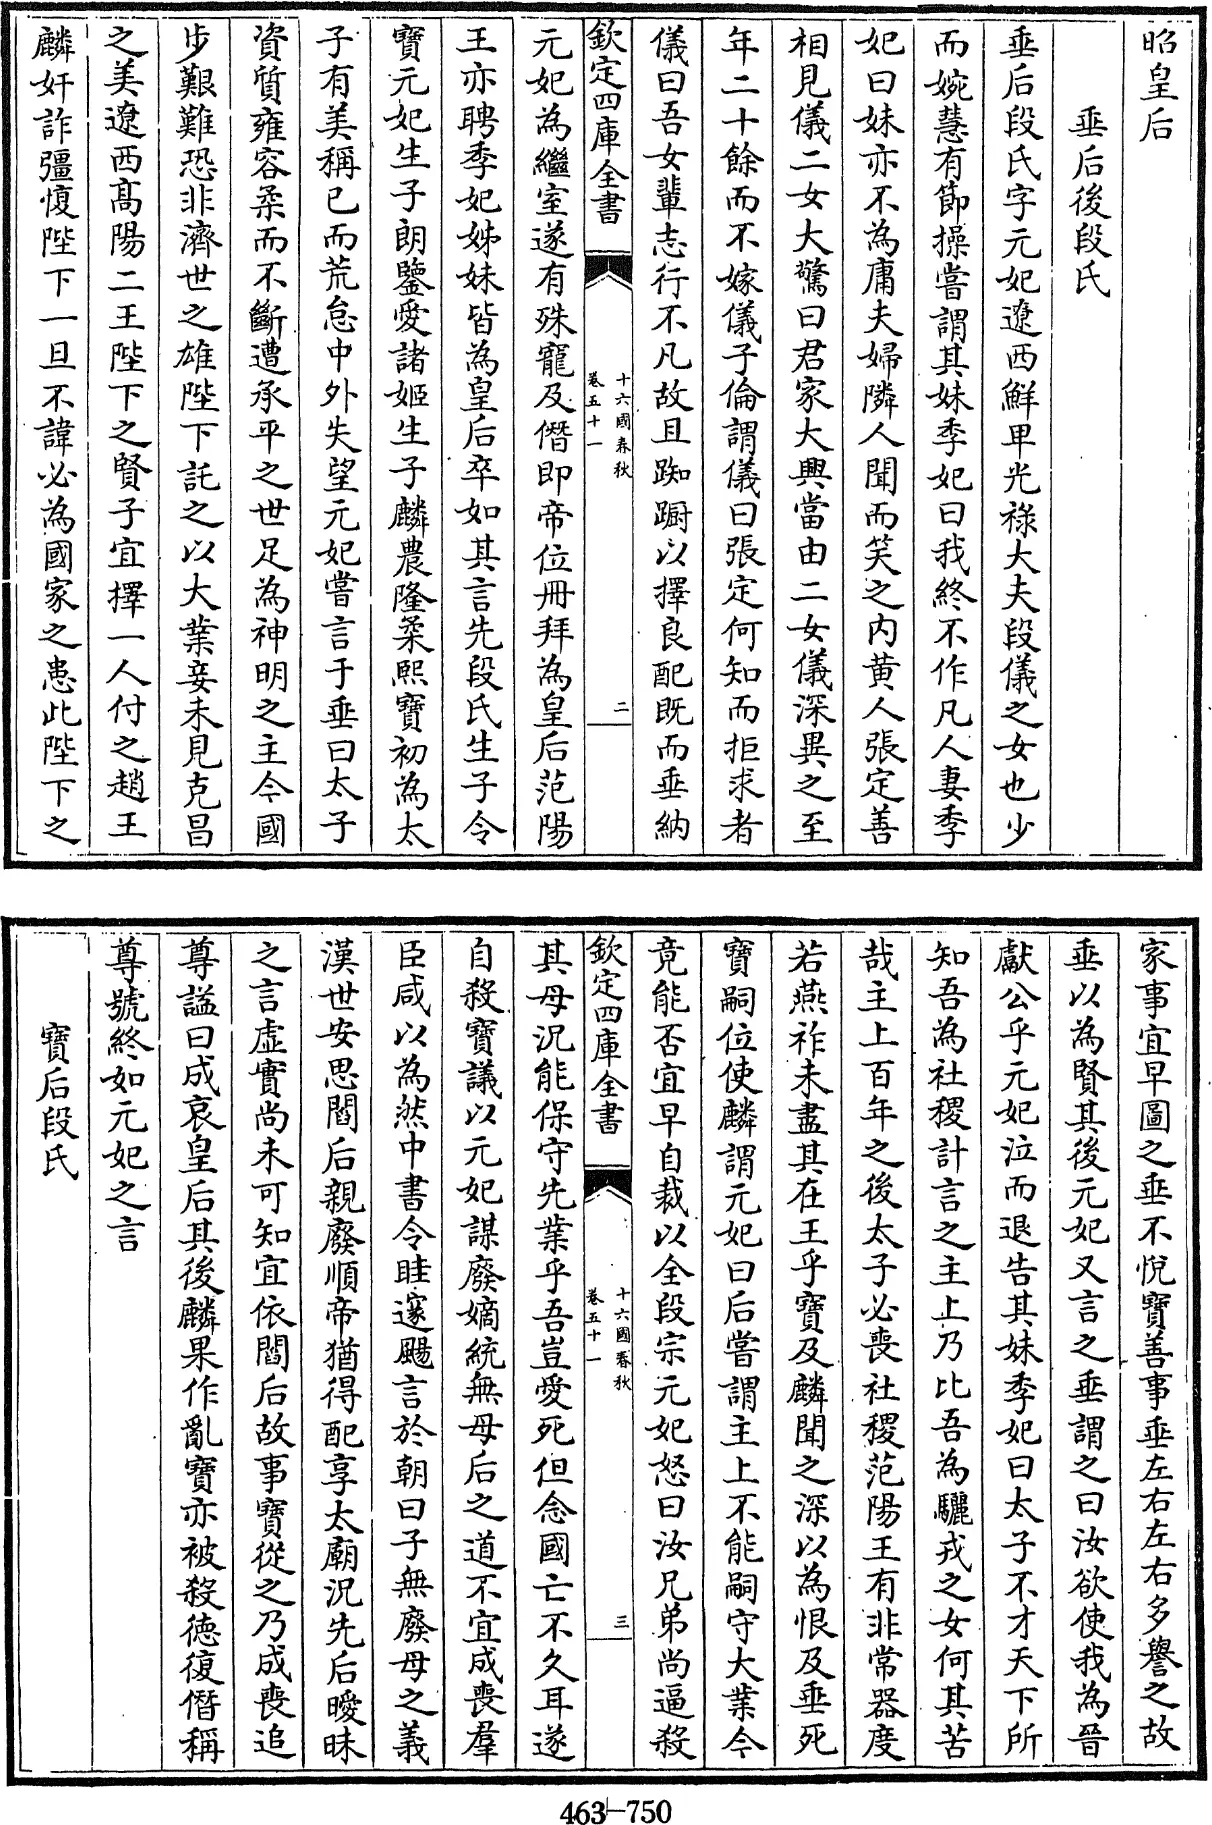 昭皇后
垂后後段氏
垂后段氏字元妃遼西鮮卑光祿大夫段儀之女也少
而婉慧有節操嘗謂其妹季妃曰我終不作凡人妻季
妃曰妹亦不為庸夫婦隣人聞而笑之内黄人張定善
相見儀二女大驚曰君家大興當由二女儀深異之至
年二十餘而不嫁儀子倫謂儀曰張定何知而拒求者
儀曰吾女輩志行不凡故且踟蹰以擇良配既而垂納
欽定四庫全書
十六國春秋
卷五十一
二
元妃為繼室遂有殊寵及僭即帝位冊拜為皇后范陽
王亦聘季妃姊妹皆為皇后卒如其言先段氏生子令
寶元妃生子朗鑒愛諸姬生子麟農隆柔熙寶初為太
子有美稱已而荒怠中外失望元妃嘗言于垂曰太子
資質雍容柔而不斷遭承平之世足為神明之主今國
步艱難恐非濟世之雄陛下託之以大業妾未見克昌
之美遼西髙陽二王陛下之賢子宜擇一人付之趙王
麟奸詐彊愎陛下一旦不諱必為國家之患此陛下之
家事宜早圖之垂不悅寶善事垂左右左右多譽之故
垂以為賢其後元妃又言之垂謂之曰汝欲使我為晉
獻公乎元妃泣而退告其妹季妃曰太子不才天下所
知吾為社稷計言之主上乃比吾為驪戎之女何其苦
哉主上百年之後太子必喪社稷范陽王有非常器度
若燕祚未盡其在王乎寶及麟聞之深以為恨及垂死
寶嗣位使麟謂元妃曰后嘗謂主上不能嗣守大業今
竟能否宜早自裁以全段宗元妃怒曰汝兄弟尚逼殺
欽定四庫全書
十六國春秋
卷五十一
三
其母況能保守先業乎吾豈愛死但念國亡不久耳遂
自殺寶議以元妃謀廢嫡統無母后之道不宜成喪羣
臣咸以為然中書令眭邃颺言於朝曰子無廢母之義
漢世安思閻后親廢順帝猶得配享太廟況先后曖昧
之言虛實尚未可知宜依閻后故事寶從之乃成喪追
尊謚曰成哀皇后其後麟果作亂寶亦被殺德復僭稱
尊號終如元妃之言
寶后段氏
463-750